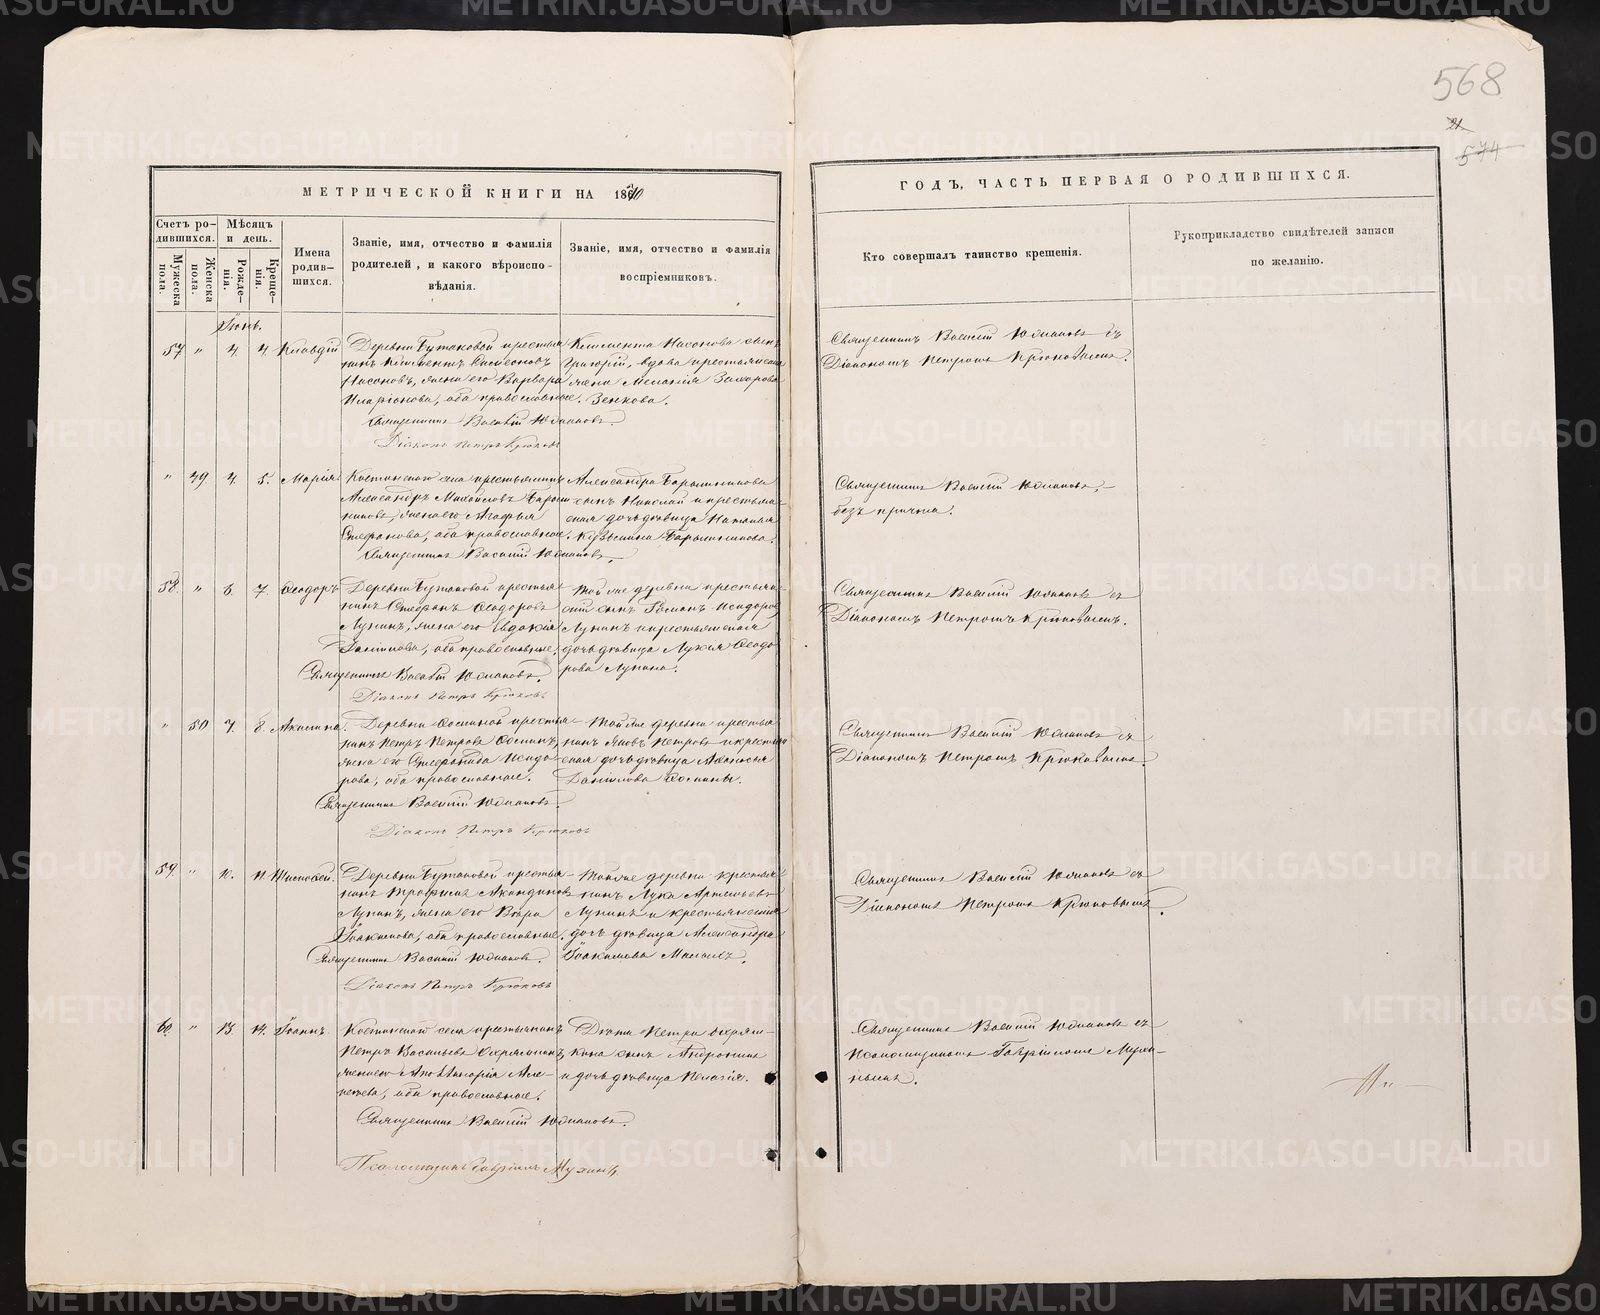 568
21
574
МЕТРИЧЕСКОЙ КНИГИ НА 1870
ГОДЪ, ЧАСТЬ ПЕРВАЯ О РОДИВШИХСЯ.
Счетъ ро-
дившихся.
Мужеска
пола.
Женска
пола.
Мѣсяцъ
и день.
Рожде-
нія.
Креще-
нія.
Имена
родив-
шихся.
Званіе, имя, отчество и фамилія
родителей, и какого вѣроиспо-
вѣданія.
Званіе, имя, отчество и фамилія
воспріемниковъ.
Кто совершалъ таинство крещенія.
Рукоприкладство свидѣтелей записи
по желанію.
Іюнь.
57 " 4. 4. Клавдій
Деревни Бутаковой крестья-
нинъ Климентъ Симеоновъ
Насоновъ, жена его Варвара
Иларіонова, оба православные.
Священникъ Василій Юдиановъ.
Діаконъ Петръ Крюковъ
Климента Насонова сынъ
Григорій, вдова крестьянская
жена Меланія Захарова
Зенкова.
Священникъ Василій Юдиановъ съ
Діакономъ Петромъ Крюковымъ.
" 49 4. 5. Марія
Костинскаго села крестьянинъ
Александръ Михайловъ Барыш-
никовъ, жена его Агафья
Стефанова, оба православные.
Священникъ Василій Юдиановъ.
Александра Барышникова
сынъ Николай и крестьян-
ская дочь девица Наталья
Козьмина Барышникова.
Священникъ Василій Юдиановъ,
безъ причта.
58. " 6. 7. Ѳеодоръ
Деревни Бутаковой крестья-
нинъ Стефанъ Ѳеодоровъ
Лукинъ, жена его Евдокія
Данилова, оба православные.
Священникъ Василій Юдиановъ.
Діаконъ Петръ Крюковъ
Той же деревни крестьян-
скій сынъ Романъ Исидоровъ
Лукинъ и крестьянская
дочь девица Лукія Ѳеодо-
рова Лукина.
Священникъ Василій Юдиановъ съ
Діакономъ Петромъ Крюковымъ.
" 50 7. 8. Акилина.
Деревни Ѳоминой крестья-
нинъ Петръ Петровъ Ѳоминъ,
жена его Стефанида Исидо-
рова, оба православные.
Священникъ Василій Юдиановъ.
Діаконъ Петръ Крюковъ
Той же деревни крестья-
нинъ Яковъ Петровъ и крестьян-
ская дочь девица Аѳанасья
Данилова Ѳомины.
Священникъ Василій Юдиановъ съ
Діакономъ Петромъ Крюковымъ.
59. " 10. 11. Тимоѳей.
Деревни Бутаковой крестья-
нинъ Трофимъ Акиндиновъ
Лукинъ, жена его Вѣра
Іоакимова, оба православные.
Священникъ Василій Юдиановъ.
Діаконъ Петръ Крюковъ
Той же деревни крестья-
нинъ Лука Артемьевъ
Лукинъ и крестьянская
дочь девица Александра
Іоакимова
Священникъ Василій Юдиановъ съ
Діакономъ Петромъ Крюковымъ.
60. " 13. 14. Іоаннъ.
Костинскаго села крестьянинъ
Петръ Васильевъ
жена его Аполлинарія Але-
оба православные.
Священникъ Василій Юдиановъ.
Псаломщикъ Гавріилъ Мухинъ
Петра
сынъ Андроникъ
и дочь девица Пелагія.
Священникъ Василій Юдиановъ съ
Псаломщикомъ Гавріиломъ Мухи-
нымъ.